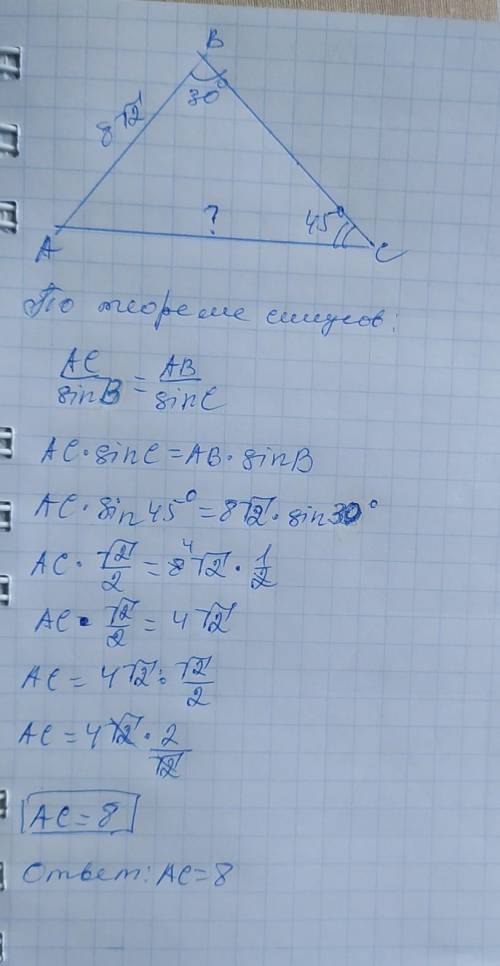 B
30°
8√2
?
45°
A
C
По теореме синусов:
AC/sinB = AB/sinC
AC·sinC=AB·sinB
AC·sin45°=8√2·sin30°
AC·√2/2=8⁴√2·1/2
AC·√2/2=4√2
AC=4√2:√2/2
AC=4√2·2/√2
AC=8
Ответ: AC=8